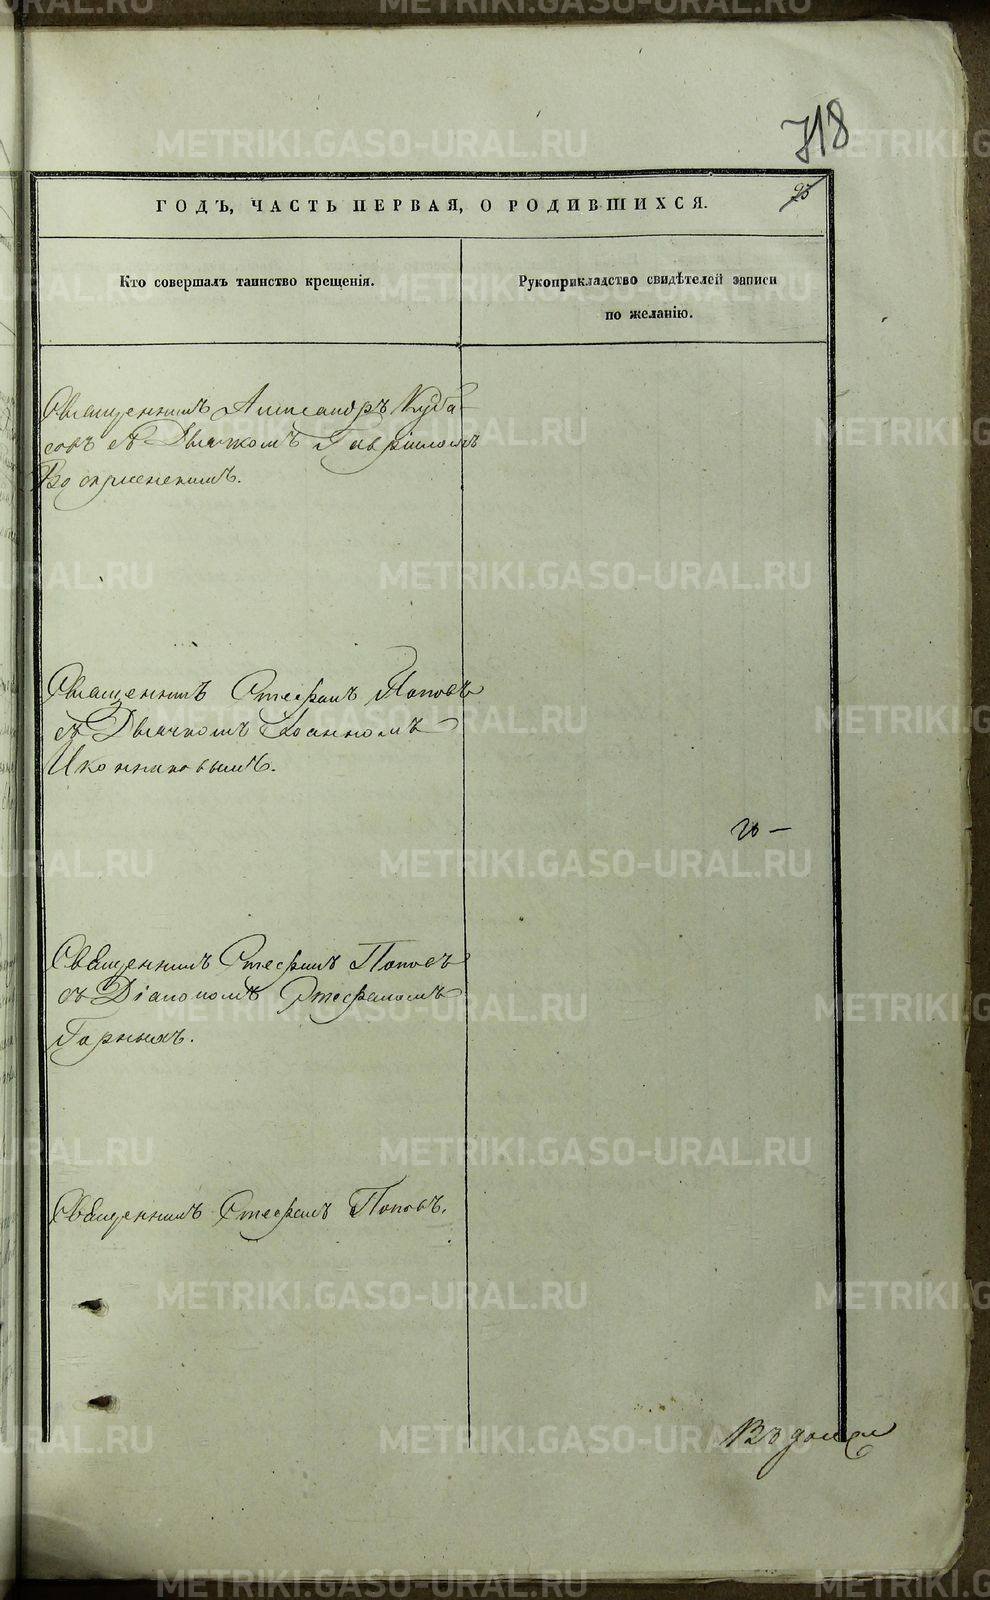 718
23
ГОДЪ, ЧАСТЬ ПЕРВАЯ, О РОДИВШИХСЯ.
Кто совершалъ таинство крещенія.
Рукоприкладство свидѣтелей записи
по желанію.
Священникъ Александръ Куба-
совъ съ Дьячкомъ Гавріиломъ
Воскресенскимъ.
Священникъ Стефанъ Поповъ
съ Дьячкомъ Іоанномъ
Иконниковымъ.
Священникъ Стефанъ Поповъ
съ Діакономъ Стефаномъ
Горныхъ.
Священникъ Стефанъ Поповъ.
METRIKI.GASO-URAL.RU